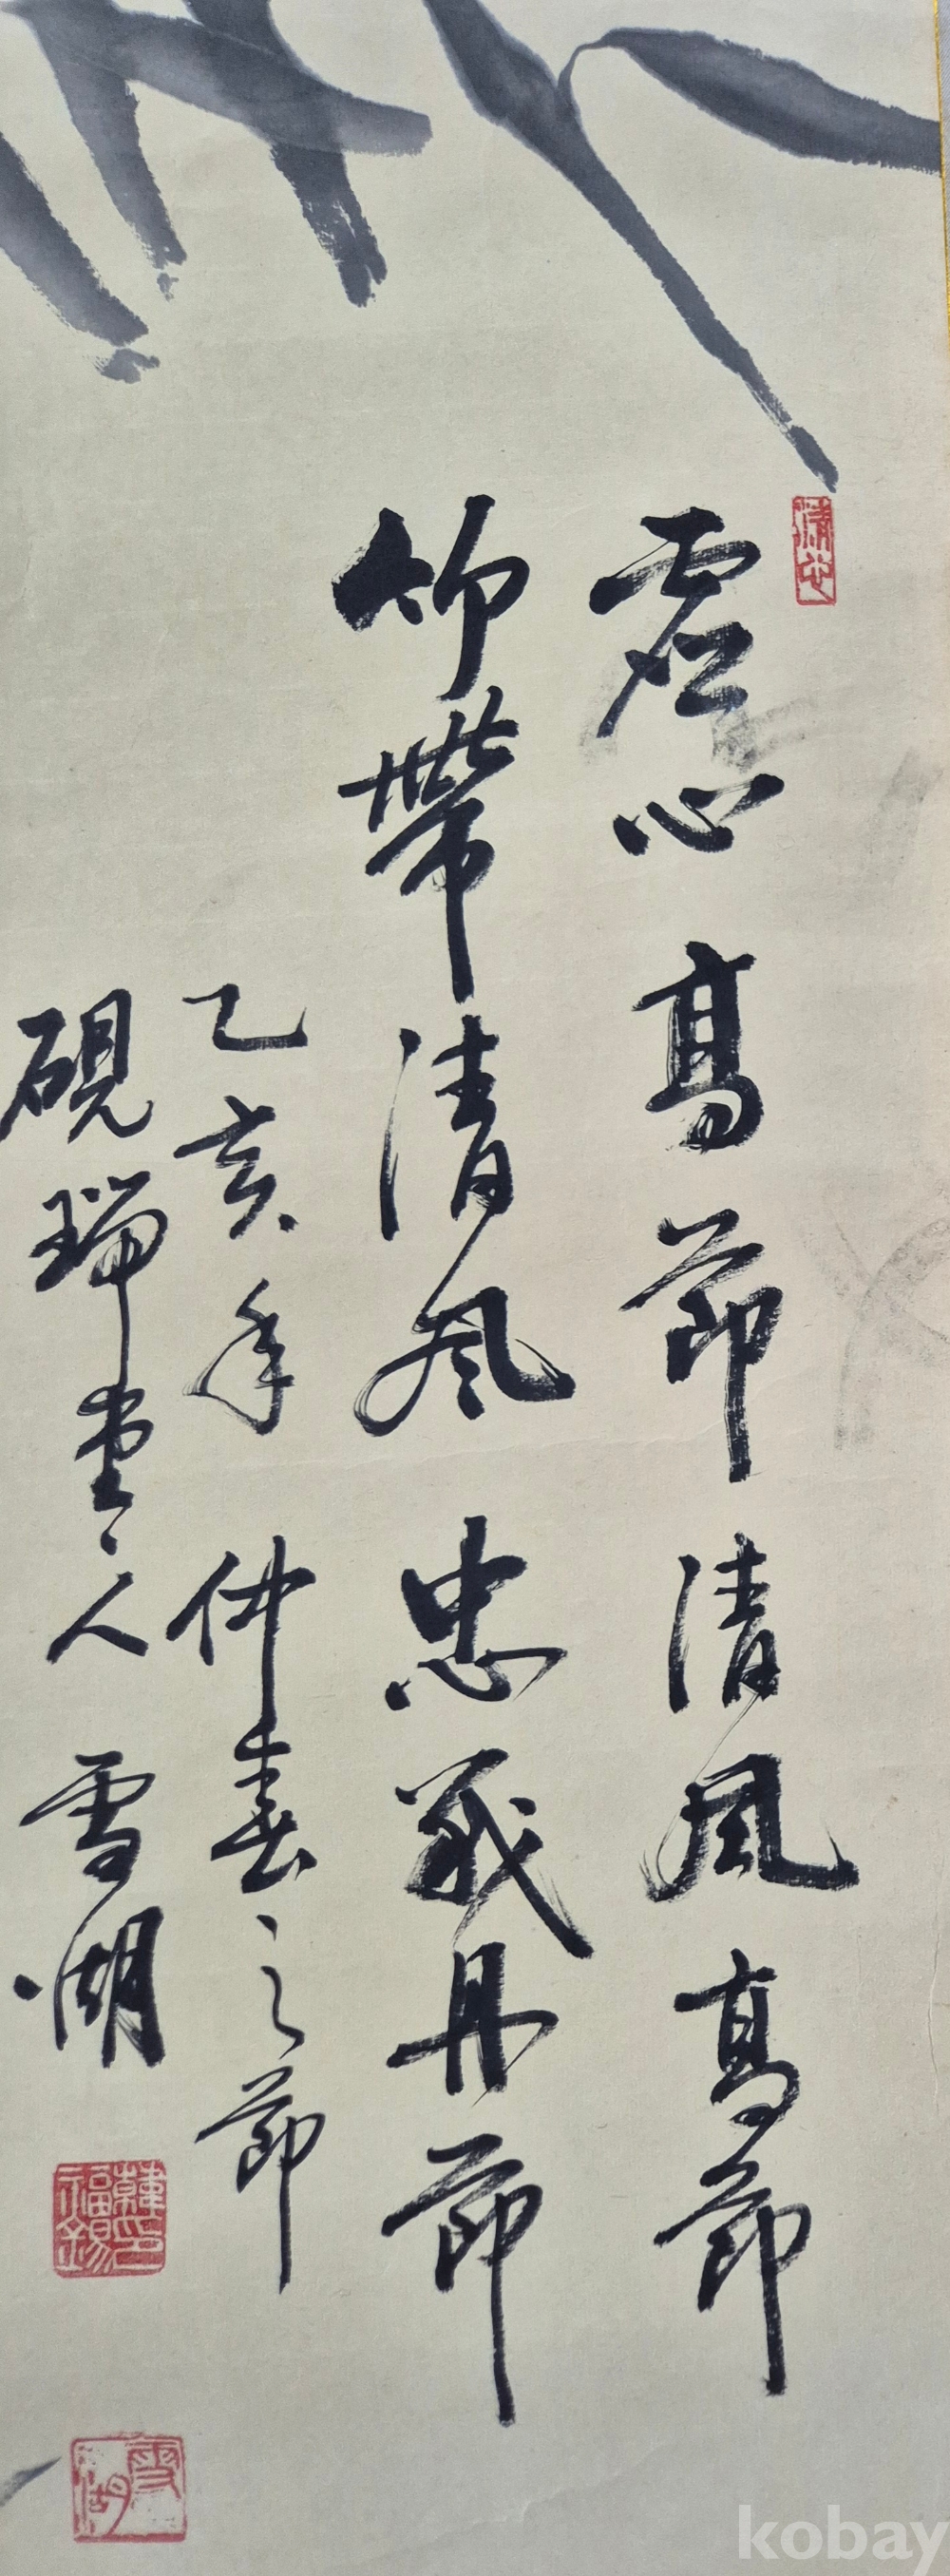 虛心高節清風高節
竹帶清風忠義丹節
乙亥年仲春之節
硯瑞堂人雪湖
韓福錫印
雪湖
kobay